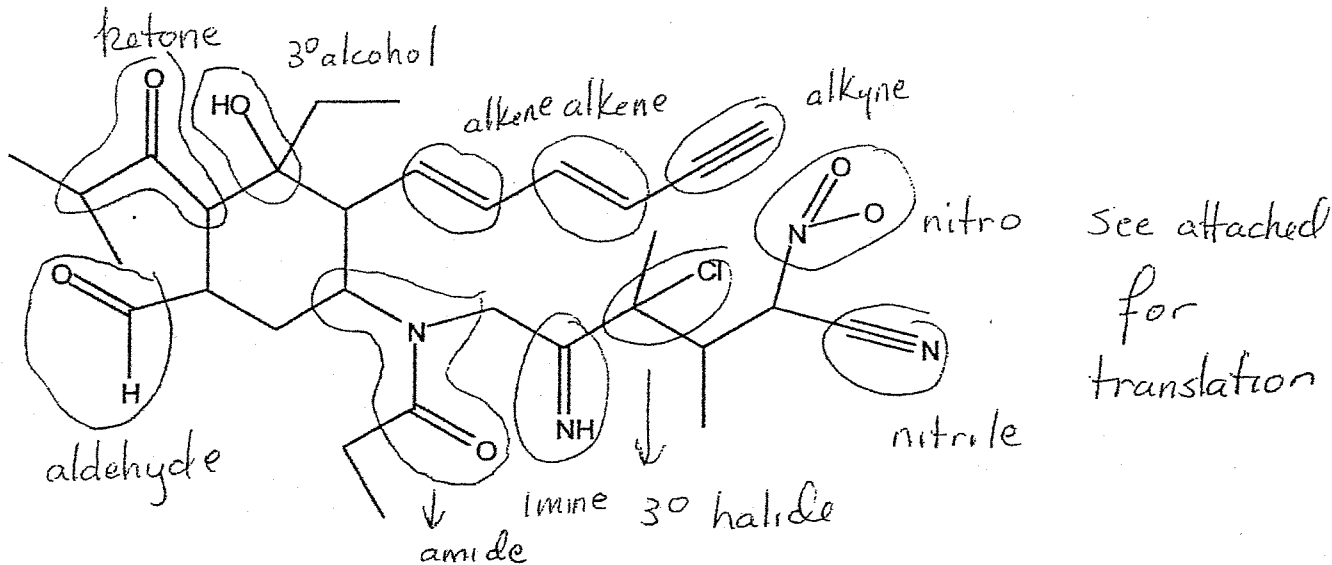 ketone
3° alcohol
alkene alkene
alkyne
O
HO
O
N
O
nitro
see attached
for
translation
Cl
O
H
aldehyde
N
O
NH
N
nitrile
imine
3° halide
amide